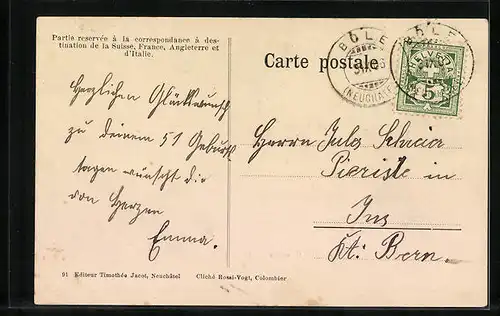 Partie reservée à la correspondance à des-
tination de la Suisse, France, Angleterre et
d'Italie.
Carte postale
BÔLE
(NEUCHATEL)
BÔLE
5
Herzlichen Glückwunsch
zu deinem 51 Geburts
tagen wünscht dir
von Herzen
Emma.
Herrn Jules
in
Ins
Kt. Bern.
91 Editeur Timothée Jacot, Neuchâtel
Cliché Rossi-Vogt, Colombier